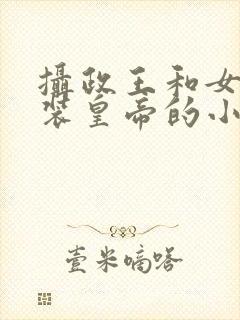 攝政王和女
裝皇帝的小
壹米嘀嗒